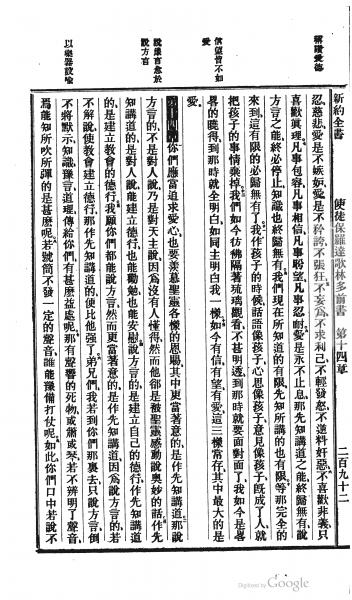 新約全書 使徒保羅達歌林多前書 第十四章 二百九十二
稱讚愛德
忍慈悲愛是不嫉妬愛是不矜誇不張狂不妄為不求利己不輕發怒不逆料奸惡不喜歡非義只
喜歡真理凡事包容凡事相信凡事盼望凡事忍耐愛是永不止息那先知講道之能終歸無有說
方言之能終必停止知識也終歸無有我們現在所知道的有限先知所講的也有限等那完全的
來到這有限的必歸無有了我作孩子的時候話語像孩子心思像孩子意見像孩子既成了人就
把孩子的事情棄掉我們如今彷彿隔著琉璃觀看不甚明透到那時就要面對面了我如今是畧
信望皆不如
愛
畧的曉得到那時就全明白如同主明白我一樣如今有信有望有愛這三樣常存其中最大的是
愛
第十四章你們應當追求愛心也要羨慕聖靈各樣的恩賜其中更當著意的是作先知講道那說
說豫言愈於
說方言
方言的不是對人說乃是對天主說因為沒有人懂得然而他卻是被聖靈感動說奧妙的話作先
知講道的是對人說能建立德行也能勸勉也能安慰說方言的是建立自己的德行作先知講道
的是建立教會的德行我願你們都能說方言然而更當著意的是作先知講道因為說方言的若
不解說使教會建立德行那作先知講道的便比他强了弟兄們我若到你們那裏去只說方言倒
以樂器設喻
不將默示知識豫言道理傳給你們有甚麼益處呢那有聲響的死物或簫或琴若不辨明了聲音
焉能知所吹所彈的是甚麼呢若號筒不發一定的聲音誰能豫備打仗呢如此你們口中若說不
Digitized by Google